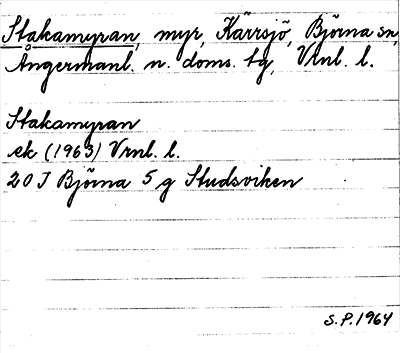 Stakamyran, myr, Kärrsjö, Björna sn,
Ångermanl. n. doms. tg, Vrnl. l.
Stakamyran
ek (1963) Vrnl. l.
20 J Björna 5 g Studsviken
S.P. 1964